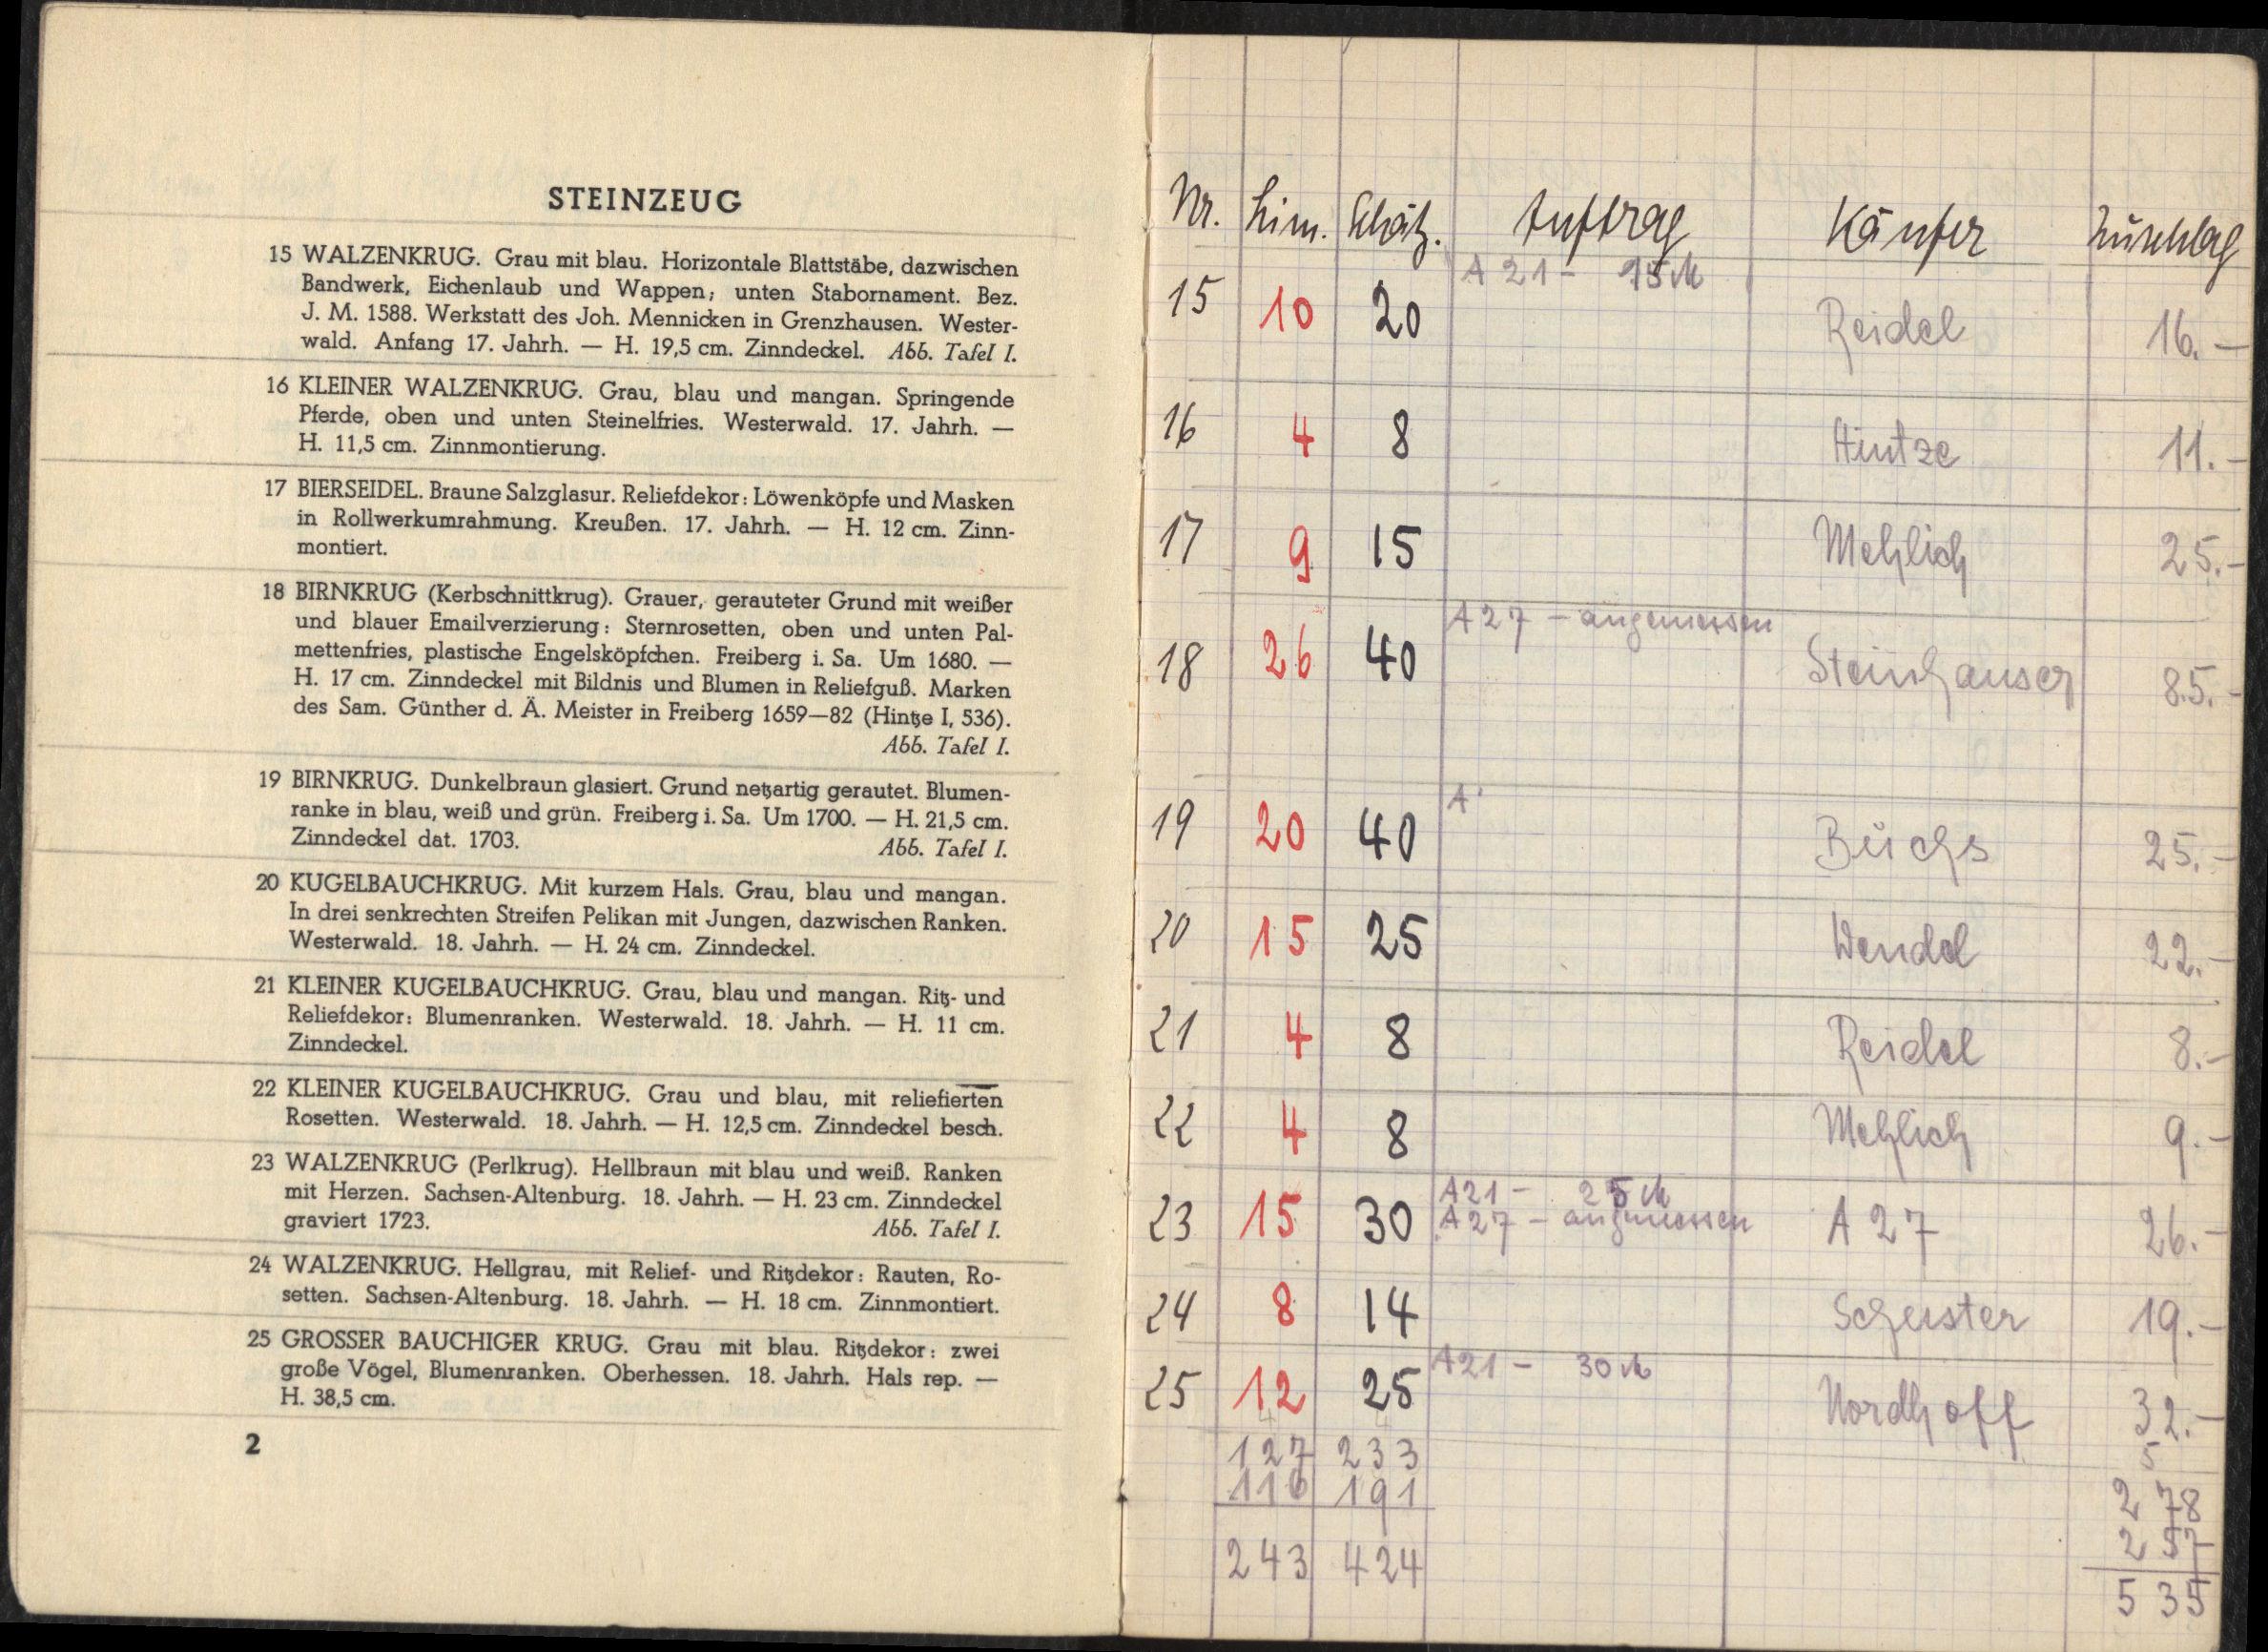 STEINZEUG
15 WALZENKRUG. Grau mit blau. Horizontale Blattstäbe, dazwischen
Bandwerk, Eichenlaub und Wappen; unten Stabornament. Bez.
J. M. 1588. Werkstatt des Joh. Mennicken in Grenzhausen. Wester-
wald. Anfang 17. Jahrh. — H. 19,5 cm. Zinndeckel. Abb. Tafel I.
16 KLEINER WALZENKRUG. Grau, blau und mangan. Springende
Pferde, oben und unten Steinelfries. Westerwald. 17. Jahrh. —
H. 11,5 cm. Zinnmontierung.
17 BIERSEIDEL. Braune Salzglasur. Reliefdekor: Löwenköpfe und Masken
in Rollwerkumrahmung. Kreußen. 17. Jahrh. — H. 12 cm. Zinn-
montiert.
18 BIRNKRUG (Kerbschnittkrug). Grauer, gerauteter Grund mit weißer
und blauer Emailverzierung: Sternrosetten, oben und unten Pal-
mettenfries, plastische Engelsköpfchen. Freiberg i. Sa. Um 1680. —
H. 17 cm. Zinndeckel mit Bildnis und Blumen in Reliefguß. Marken
des Sam. Günther d. Ä. Meister in Freiberg 1659—82 (Hintze I, 536).
Abb. Tafel I.
19 BIRNKRUG. Dunkelbraun glasiert. Grund netzartig gerautet. Blumen-
ranke in blau, weiß und grün. Freiberg i. Sa. Um 1700. — H. 21,5 cm.
Zinndeckel dat. 1703. Abb. Tafel I.
20 KUGELBAUCHKRUG. Mit kurzem Hals. Grau, blau und mangan.
In drei senkrechten Streifen Pelikan mit Jungen, dazwischen Ranken.
Westerwald. 18. Jahrh. — H. 24 cm. Zinndeckel.
21 KLEINER KUGELBAUCHKRUG. Grau, blau und mangan. Ritz- und
Reliefdekor: Blumenranken. Westerwald. 18. Jahrh. — H. 11 cm.
Zinndeckel.
22 KLEINER KUGELBAUCHKRUG. Grau und blau, mit reliefierten
Rosetten. Westerwald. 18. Jahrh. — H. 12,5 cm. Zinndeckel besch.
23 WALZENKRUG (Perlkrug). Hellbraun mit blau und weiß. Ranken
mit Herzen. Sachsen-Altenburg. 18. Jahrh. — H. 23 cm. Zinndeckel
graviert 1723. Abb. Tafel I.
24 WALZENKRUG. Hellgrau, mit Relief- und Ritzdekor: Rauten, Ro-
setten. Sachsen-Altenburg. 18. Jahrh. — H. 18 cm. Zinnmontiert.
25 GROSSER BAUCHIGER KRUG. Grau mit blau. Ritzdekor: zwei
große Vögel, Blumenranken. Oberhessen. 18. Jahrh. Hals rep. —
H. 38,5 cm.
2
Nr. Lim. Schätz. Auftrag Käufer Zuschlag
A 21 - 15 M
15 10 20 Reidel 16.—
16 4 8 Hintze 11.—
17 9 15 Mehlich 25.—
A 27 - angemessen
18 26 40 Steinhauser 85.—
A
19 20 40 Büchs 25.—
20 15 25 Wendel 22.—
21 4 8 Reidel 8.—
22 4 8 Mehlich 9.—
A 21 - 25 M
23 15 30 A 27 - angemessen A 27 26.—
24 8 14 Schuster 19.—
A 21 - 30 M
25 12 25 Nordhoff 32.—
127 233
116 191 278
257
243 424
535